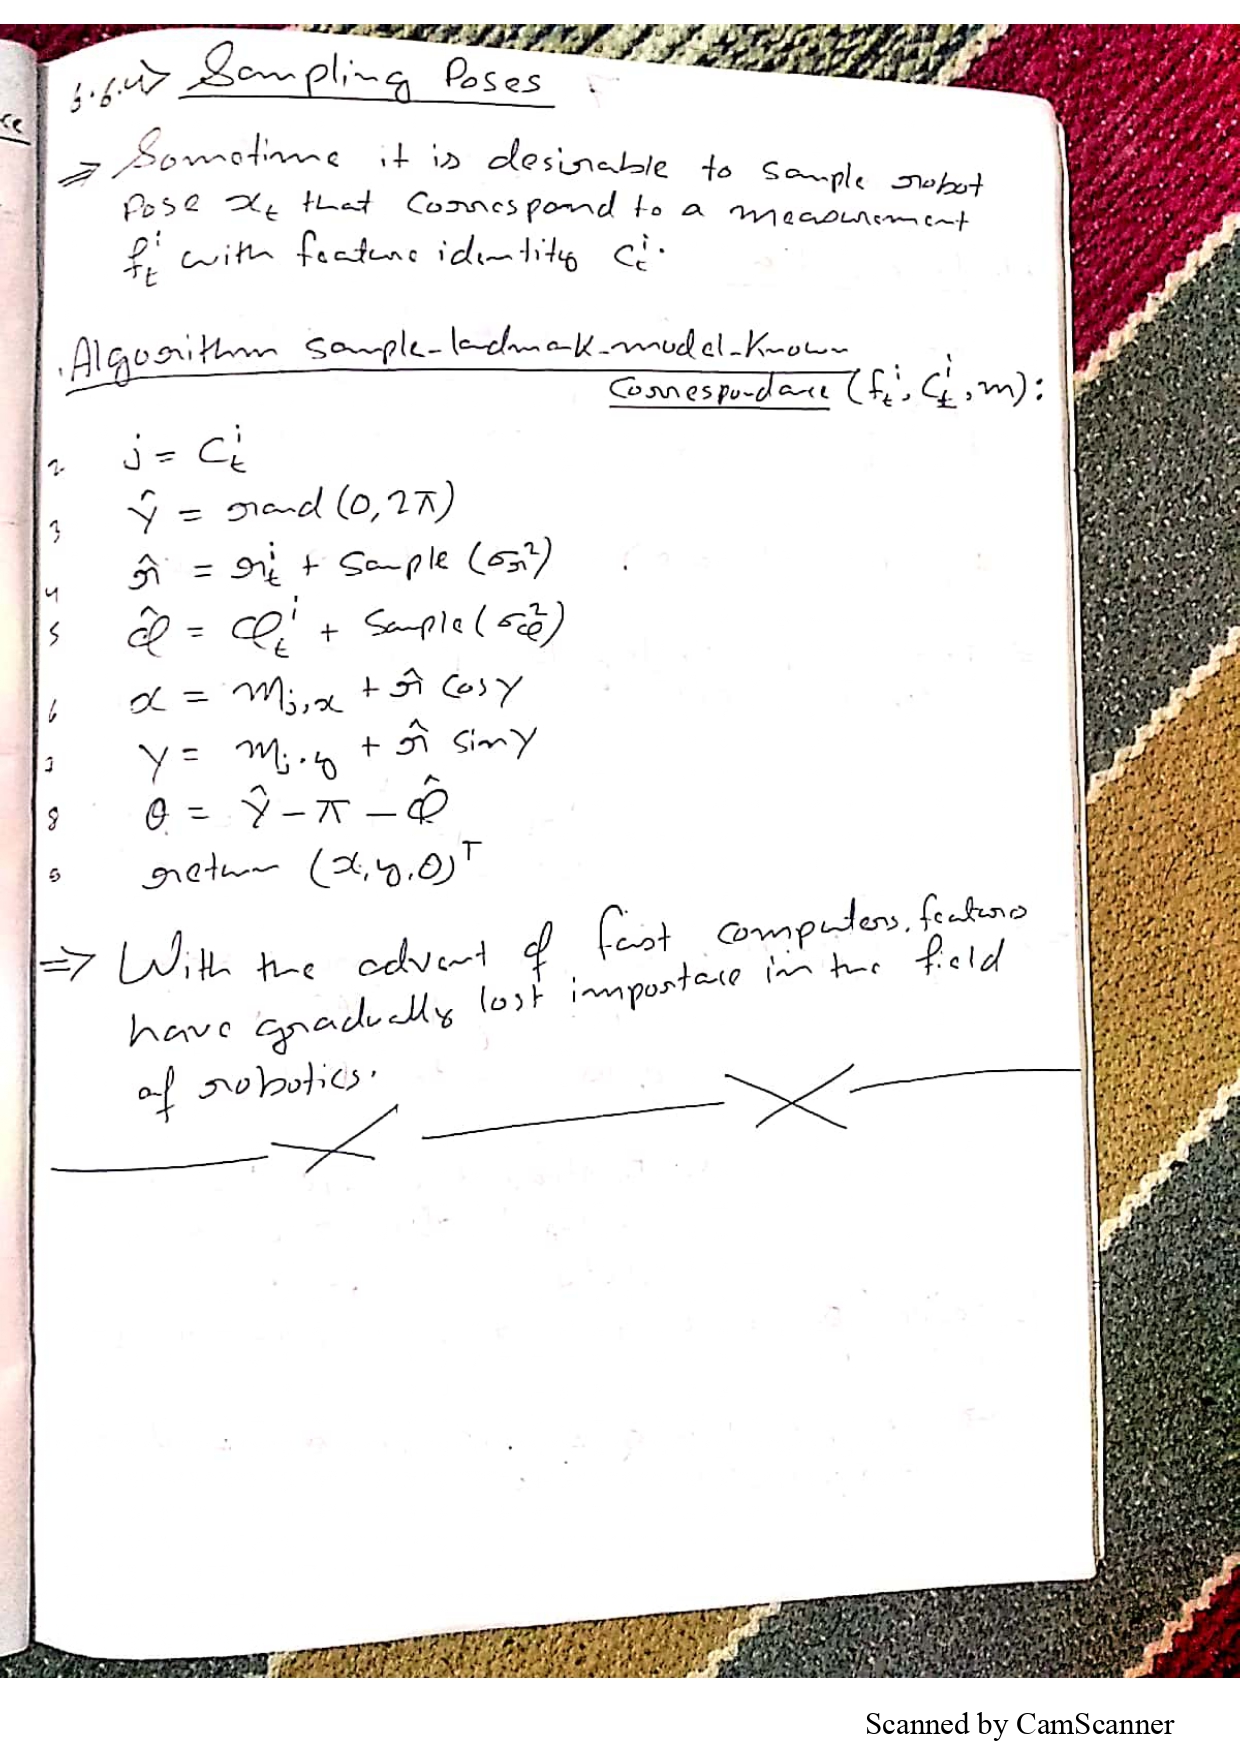 6.6.4> Sampling Poses
ce
⇒ Sometime it is desirable to sample robot
Pose x_t that Correspond to a measurement
f_t^i with feature identity C_t^i.
Algorithm sample-landmark-model-Known
Correspondance (f_t^i, C_t^i, m):
2 j = C_t^i
3 γ̂ = rand (0, 2π)
4 r̂ = r_t^i + Sample (σ_r^2)
5 φ̂ = φ_t^i + Sample (σ_φ^2)
6 x = m_j,x + r̂ cos γ
7 y = m_j.y + r̂ sin γ
8 θ = γ̂ - π - φ̂
9 return (x, y, θ)^T
⇒ With the advent of fast computers, features
have gradually lost importance in the field
of robotics.
Scanned by CamScanner